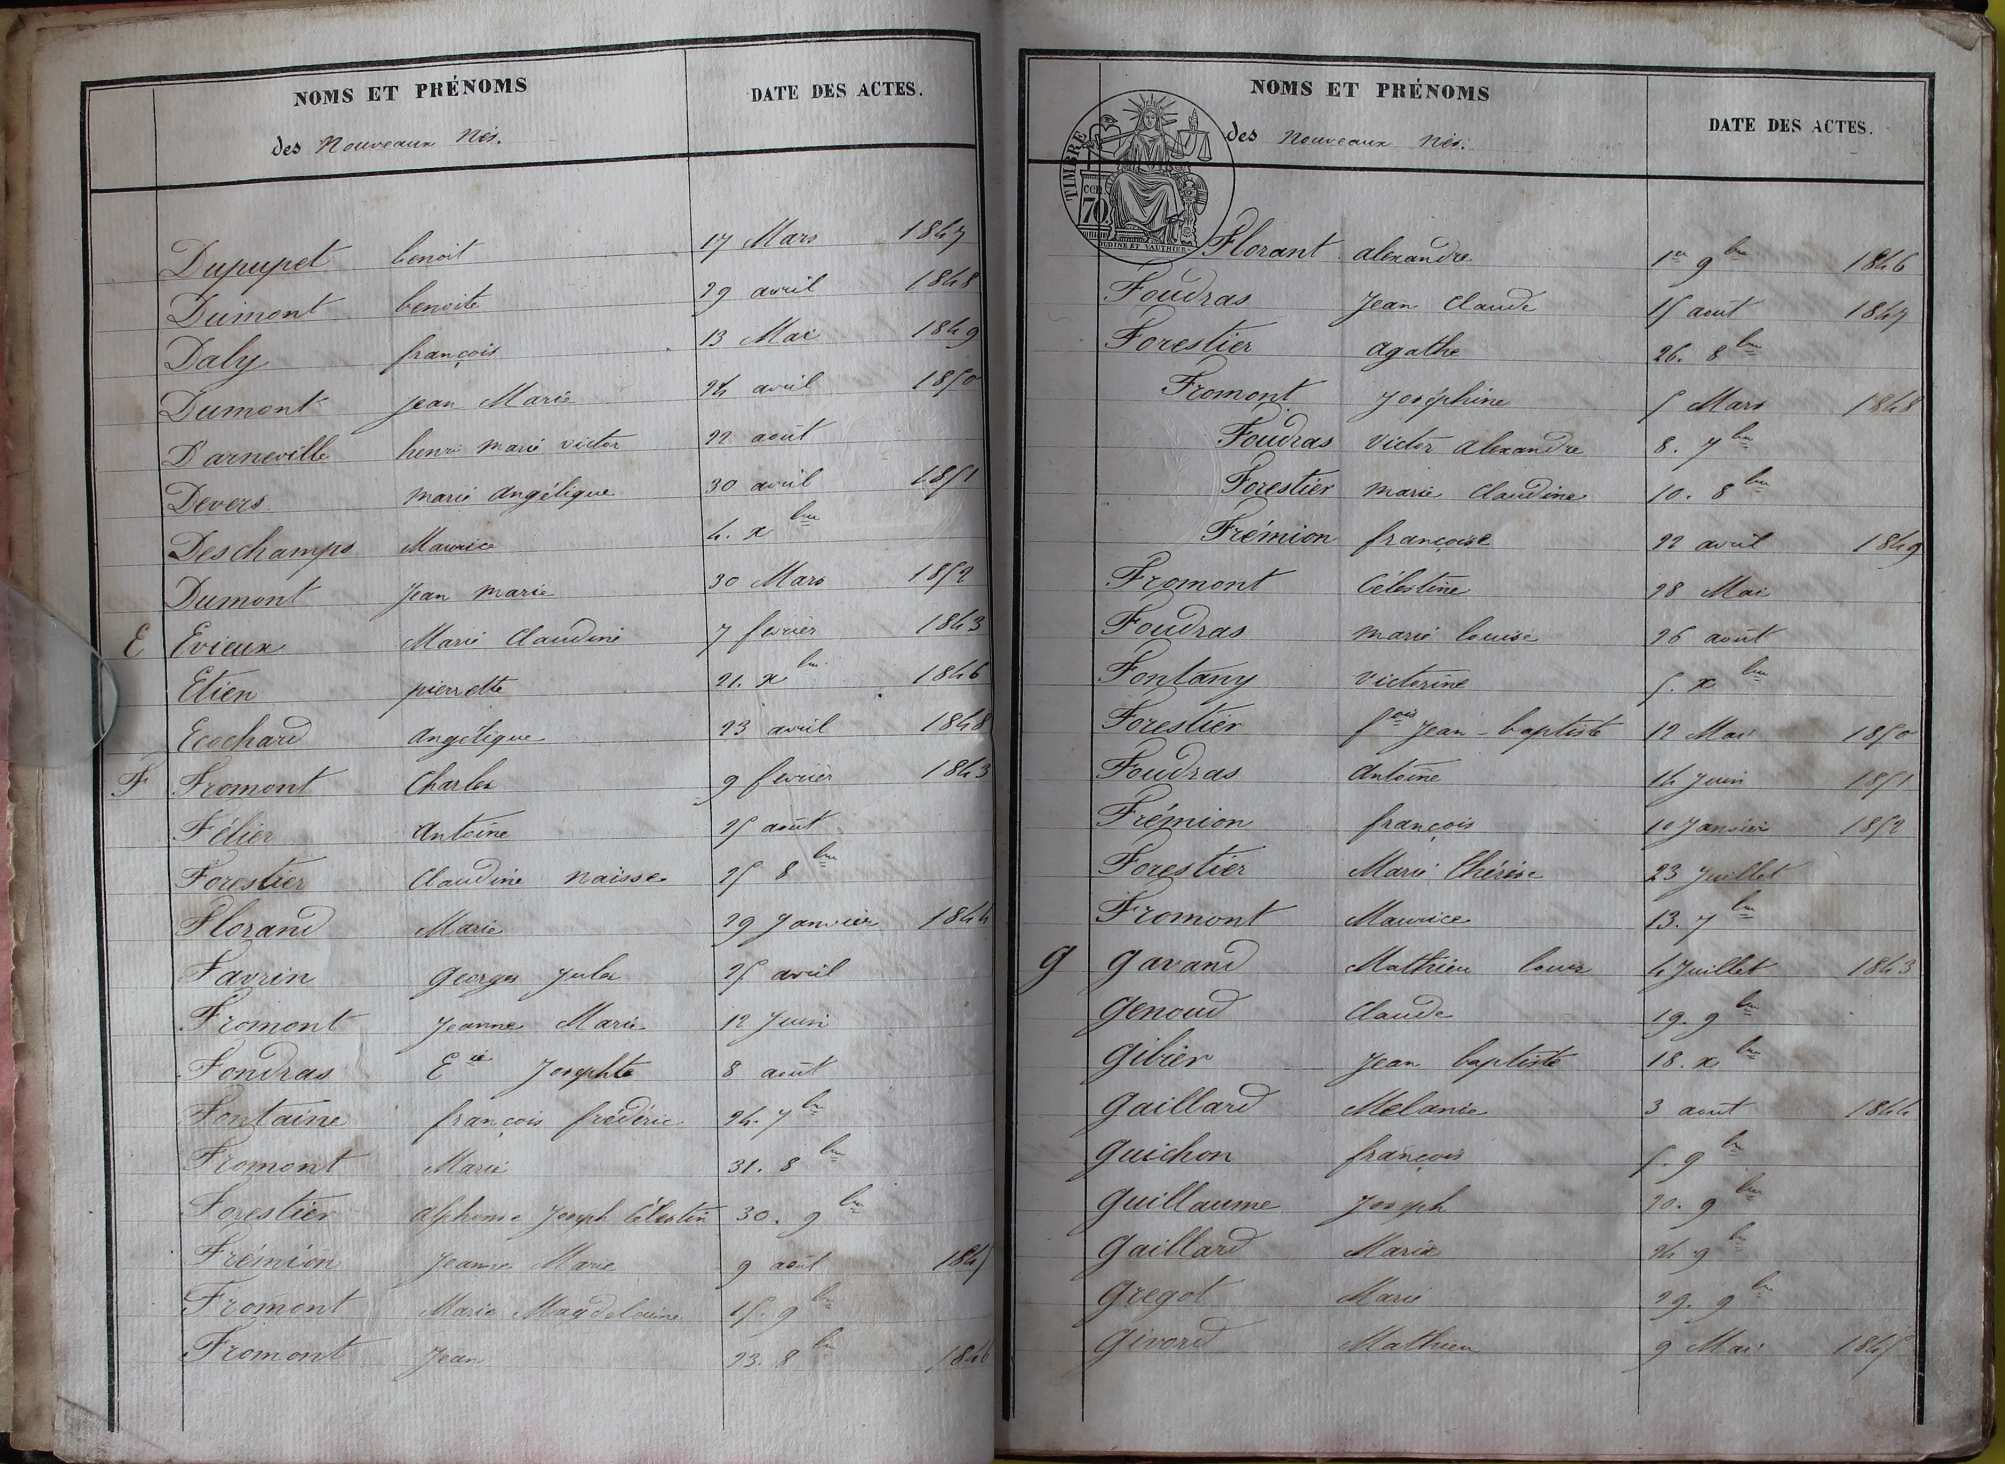 NOMS ET PRÉNOMS DATE DES ACTES.
des Nouveaux Nés.
Dupupet benoit 17 Mars 1847
Dumont benoite 29 avril 1848
Daly françois 13 Mai 1849
Dumont jean Marie 24 avril 1850
Darneville henri marie victor 22 août
Devers marie angélique 30 avril 1851
Deschamps Maurice 4. x bre
Dumont jean marie 30 Mars 1852
E Evieux Marie Claudine 7 fevrier 1843
Etien pierrette 21. x bre 1846
Ecochard angélique 23 avril 1848
F Fromont Charles 9 fevrier 1843
Félier antoine 25 août
Forestier Claudine naisse 25 8 bre
Florand Marie 29 Janvier 1844
Favrin georges jules 25 avril
Fromont jeanne Marie 12 Juin
Foudras E ie Josephte 8 août
Fontaine françois frédéric 24. 7 bre
Fromont Marie 31. 8 bre
Forestier alphonse Joseph Célestin 30. 9 bre
Frémion jeanne Marie 9 août 1845
Fromont Marie Magdeleine 15. 9 bre
Fromont Jean 23. 8 bre 1846
NOMS ET PRÉNOMS DATE DES ACTES.
des nouveaux nés.
TIMBRE
CEN
70
OUDINE ET VAUTHIER
Florant alexandre 1er 9 bre 1846
Foudras Jean Claude 15 août 1847
Forestier agathe 26. 8 bre
Fromont Joséphine 5 Mars 1848
Foudras Victor alexandre 8. 7 bre
Forestier marie Claudine 10. 8 bre
Frémion françoise 22 avril 1849
Fromont Célestine 28 Mai
Foudras marie louise 26 août
Fontany victorine 5. x bre
Forestier f ois jean-baptiste 12 Mai 1850
Foudras antoine 14 Juin 1851
Frémion françois 10 Janvier 1852
Forestier Marie Thérèse 23 Juillet
Fromont Maurice 13. 7 bre
G Gavand Mathieu louis 4 Juillet 1843
Genoud Claude 19. 9 bre
Gibier Jean baptiste 18. x bre
Gaillard Melanie 3 août 1844
Guichon françois 5. 9 bre
Guillaume Joseph 20. 9 bre
Gaillard Marie 24 9 bre
Gregot Marie 29. 9 bre
Givord Mathieu 9 Mai 1845